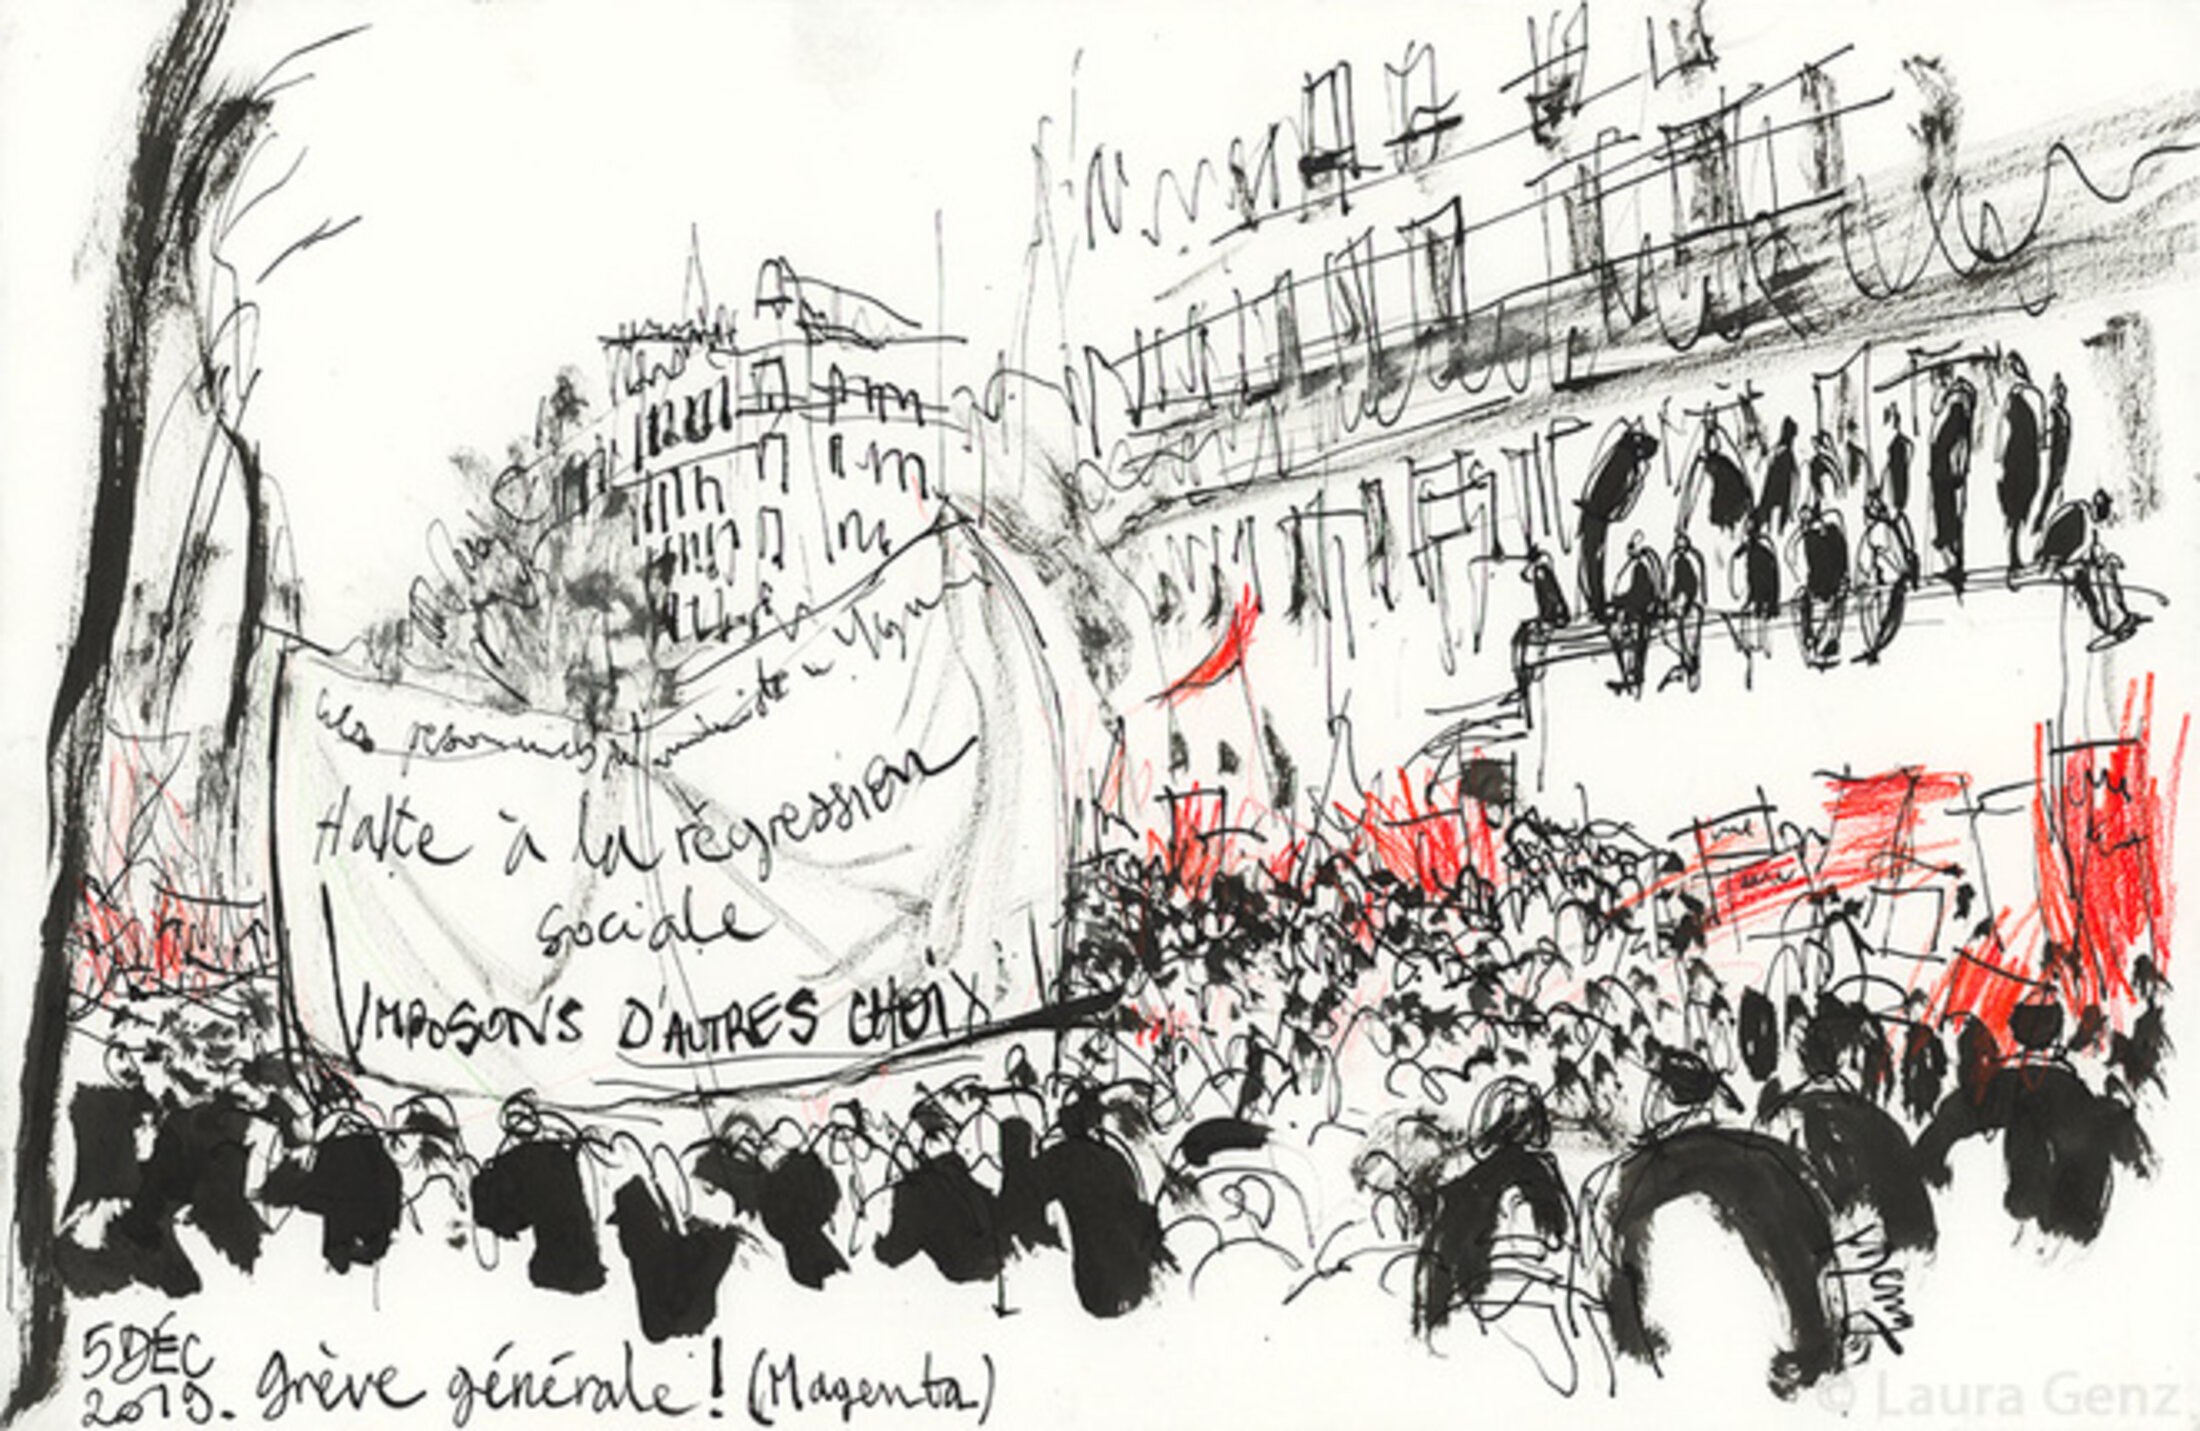 Halte à la régression
sociale
IMPOSONS D'AUTRES CHOIX
5 DÉC
2019. grève générale ! (Magenta)
© Laura Genz